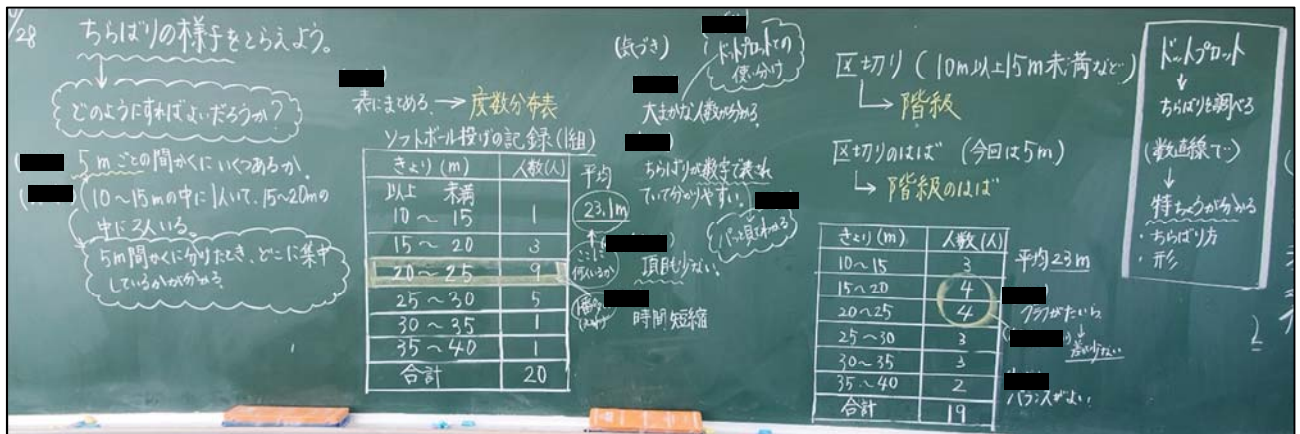 28
ちらばりの様子をとらえよう。
どのようにすればよいだろうか?
5mごとの間かくにいくつあるか。
(10~15mの中に1人いて、15~20mの
中に3人いる。
5m間かくに分けたとき、どこに集中
しているかが分かる。
表にまとめる → 度数分布表
ソフトボール投げの記録(1組)
きょり(m) 人数(人)
以上 未満
10 ~ 15 1
15 ~ 20 3
20 ~ 25 9
25 ~ 30 5
30 ~ 35 1
35 ~ 40 1
合計 20
平均
23.1m
ここに
何人いるか
(気づき)
ドットプロットでの
使い分け
大まかな人数が分かる。
ちらばりが数字で表され
ていて分かりやすい。
パッと見てわかる
項目も少ない。
時間短縮
区切り (10m以上15m未満など)
階級
区切りのはば (今回は5m)
階級のはば
きょり(m) 人数(人)
10~15 3
15~20 4
20~25 4
25~30 3
30~35 3
35~40 2
合計 19
平均23m
グラフがたいら
差が少ない
バランスがよい。
ドットプロット
ちらばりを調べる
(数直線で)
特ちょうが分かる
・ちらばり方
・形